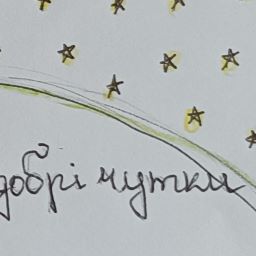 добрі чутки